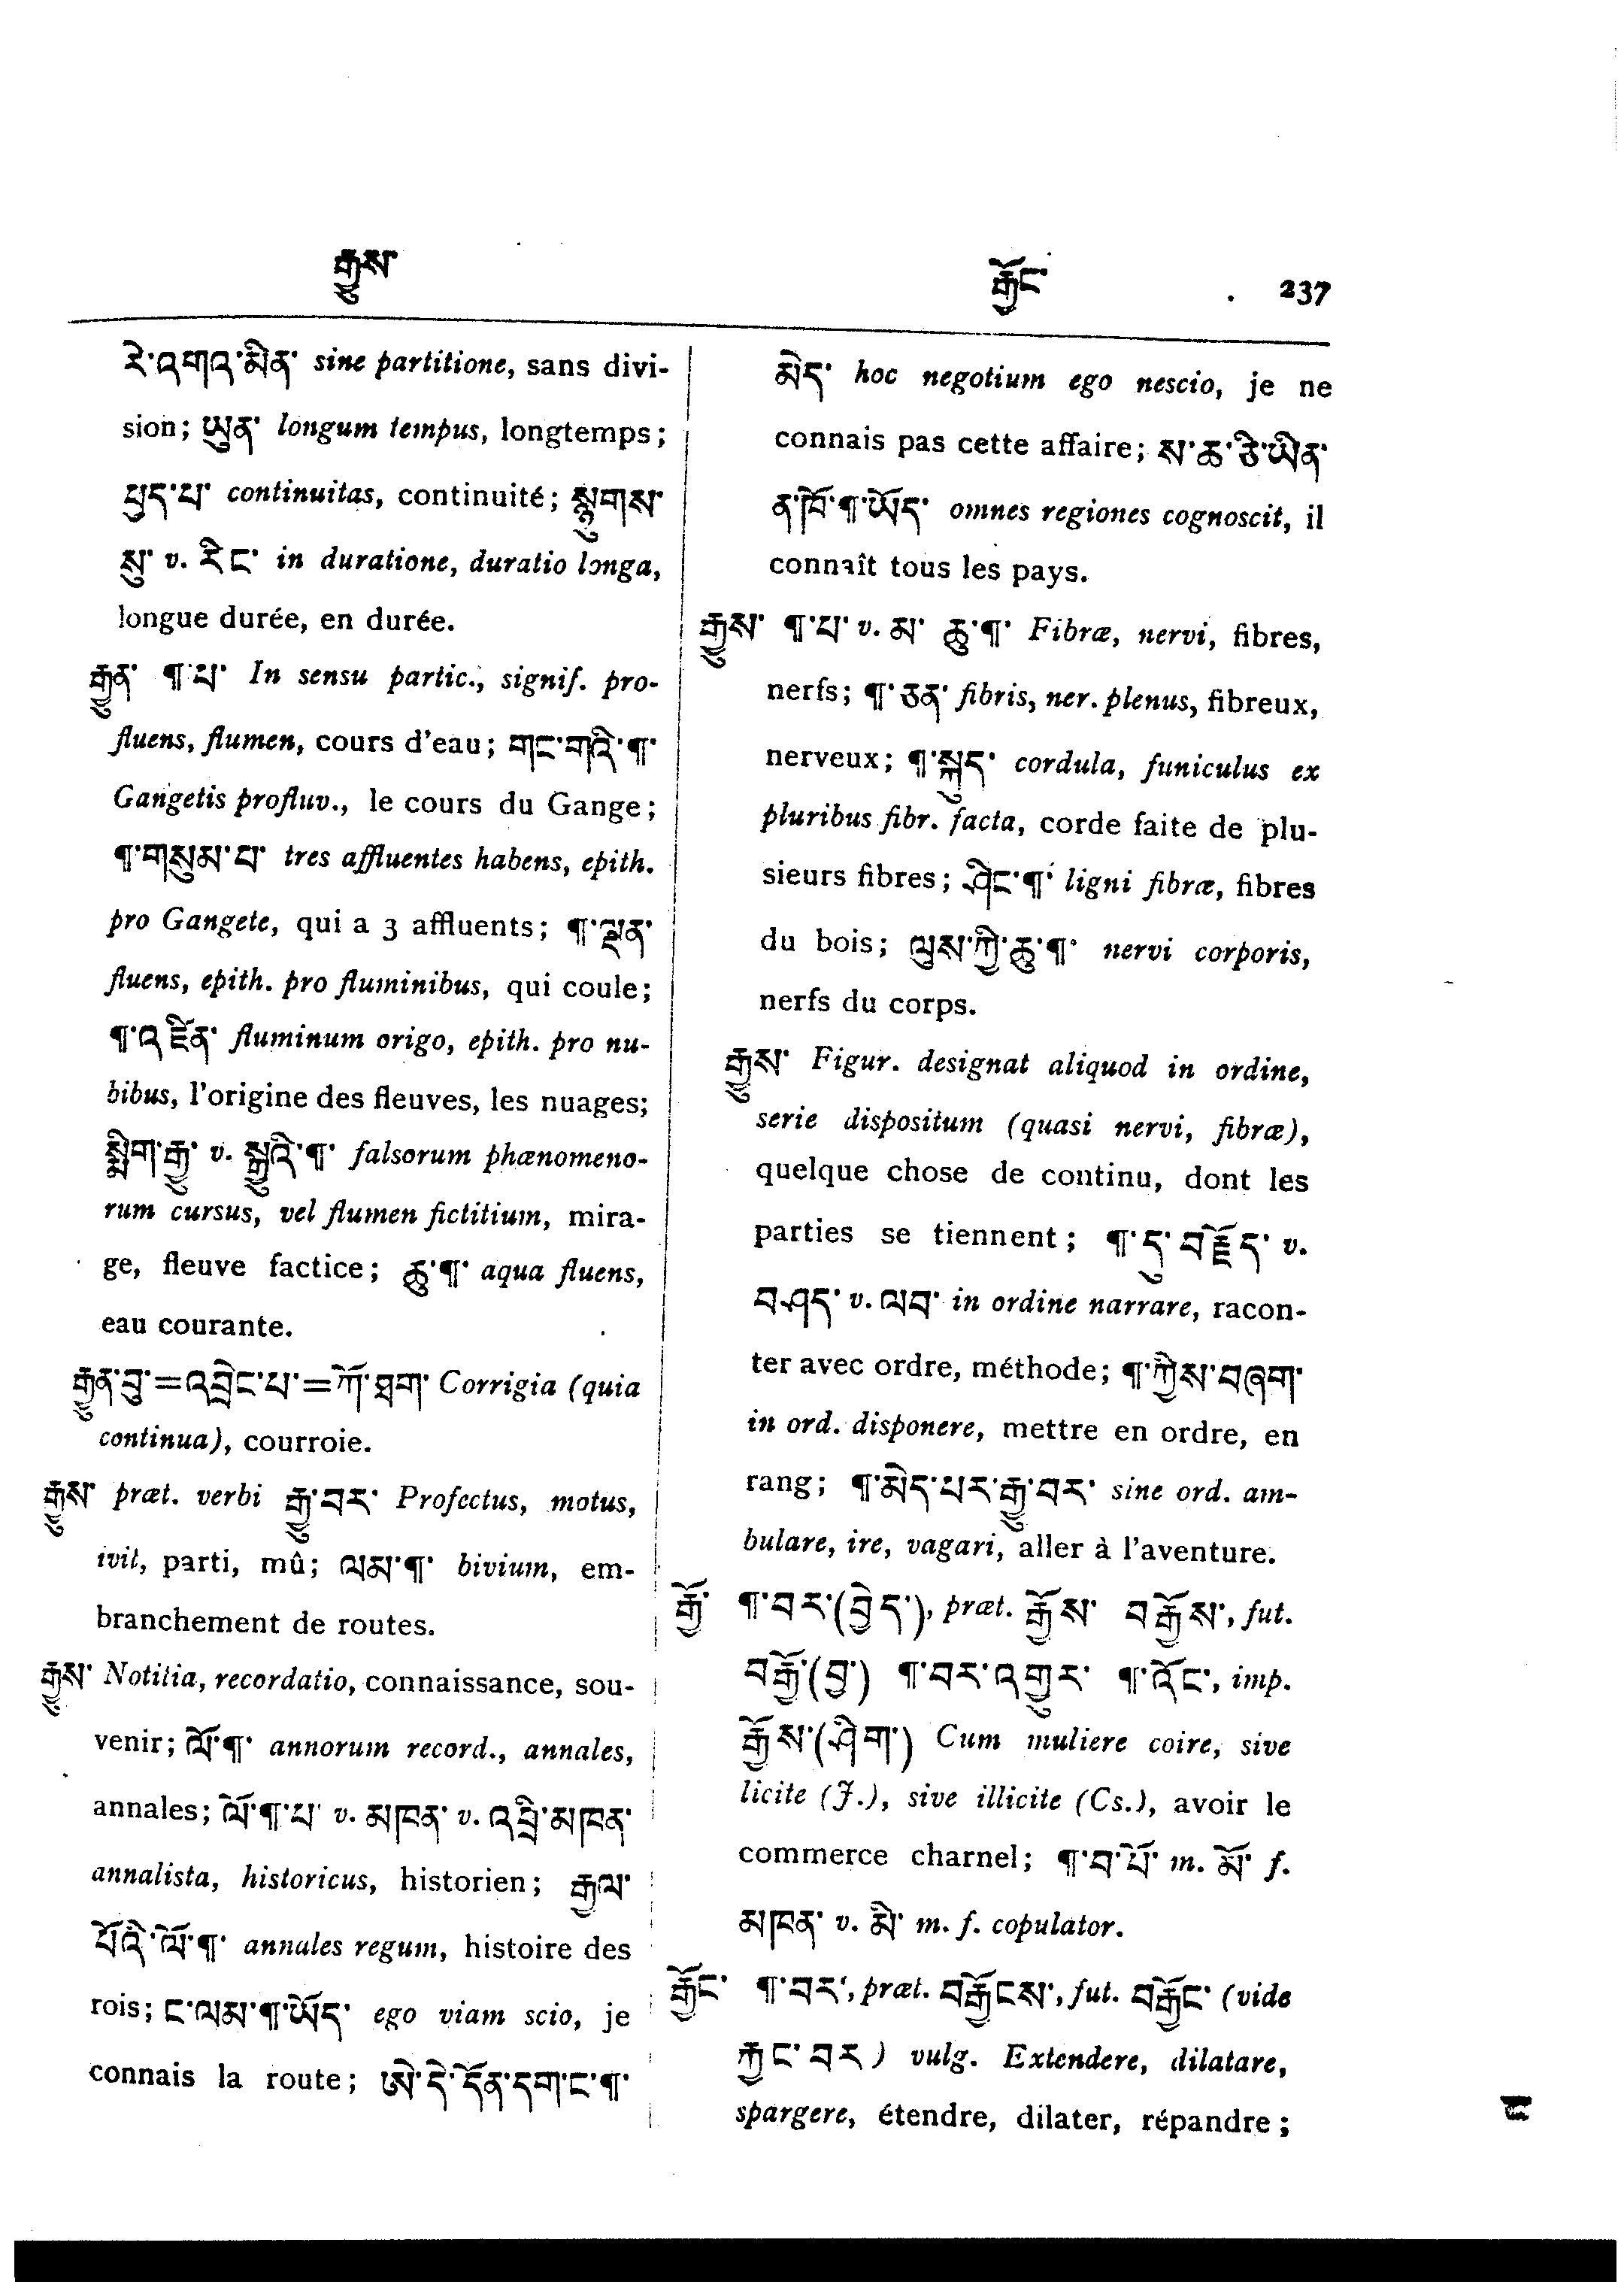 རྒྱུས་ རྒྱོང་ 237
རེ་འགའ་མིན་ sine partitione, sans divi-
sion; ཡུན་ longum tempus, longtemps;
ཕྱད་པ་ continuitas, continuité;
སུ་ v. རིང་ in duratione, duratio longa,
longue durée, en durée.
རྒྱུན་ ¶་པ་ In sensu partic., signif. pro-
fluens, flumen, cours d'eau; གང་གའི་¶་
Gangetis profluv., le cours du Gange;
¶་གསུམ་པ་ tres affluentes habens, epith.
pro Gangete, qui a 3 affluents; ¶་ལྡན་
fluens, epith. pro fluminibus, qui coule;
¶་འཛིན་ fluminum origo, epith. pro nu-
bibus, l'origine des fleuves, les nuages;
སྨིག་རྒྱུ་ v. སྒྱུའི་¶་ falsorum phænomeno-
rum cursus, vel flumen fictitium, mira-
ge, fleuve factice; ཆུ་¶་ aqua fluens,
eau courante.
རྒྱུན་བུ་=འབྲེང་པ་=ཀོ་ཐག་ Corrigia (quia
continua), courroie.
རྒྱུས་ præt. verbi རྒྱུ་བར་ Profectus, motus,
ivit, parti, mû; ལམ་¶་ bivium, em-
branchement de routes.
རྒྱུས་ Notitia, recordatio, connaissance, sou-
venir; ལོ་¶་ annorum record., annales,
annales; ལོ་¶་པ་ v. མཁན་ v. འབྲི་མཁན་
annalista, historicus, historien; རྒྱལ་
པོའི་ལོ་¶་ annales regum, histoire des
rois; ང་ལམ་¶་ཡོད་ ego viam scio, je
connais la route; ཨེ་དེ་དོན་དག་ང་¶་
མེད་ hoc negotium ego nescio, je ne
connais pas cette affaire; ས་ཆ་ཅི་ཡིན་
ན་ཁོ་¶་ཡོད་ omnes regiones cognoscit, il
connaît tous les pays.
རྒྱུས་ ¶་པ་ v. མ་ ཆུ་¶་ Fibræ, nervi, fibres,
nerfs; ¶་ཅན་ fibris, ner. plenus, fibreux,
nerveux; ¶་སྐུད་ cordula, funiculus ex
pluribus fibr. facta, corde faite de plu-
sieurs fibres; ཤིང་¶་ ligni fibræ, fibres
du bois; ལུས་ཀྱི་ཆུ་¶་ nervi corporis,
nerfs du corps.
རྒྱུས་ Figur. designat aliquod in ordine,
serie dispositum (quasi nervi, fibræ),
quelque chose de continu, dont les
parties se tiennent; ¶་དུ་བརྗོད་ v.
བཤད་ v. ལབ་ in ordine narrare, racon-
ter avec ordre, méthode; ¶་ཀྱིས་བཞག་
in ord. disponere, mettre en ordre, en
rang; ¶་མེད་པར་རྒྱུ་བར་ sine ord. am-
bulare, ire, vagari, aller à l'aventure.
རྒྱོ་ ¶་བར་(བྱེད་), præt. རྒྱོས་ བརྒྱོས་, fut.
བརྒྱོ་(བྱ་) ¶་བར་འགྱུར་ ¶་འོང་, imp.
རྒྱོས་(ཤིག་) Cum muliere coire, sive
licite (J.), sive illicite (Cs.), avoir le
commerce charnel; ¶་བ་པོ་ m. མོ་ f.
མཁན་ v. མི་ m. f. copulator.
རྒྱོང་ ¶་བར་, præt. བརྒྱོངས་, fut. བརྒྱོང་ (vide
རྐྱང་བར) vulg. Extendere, dilatare,
spargere, étendre, dilater, répandre;